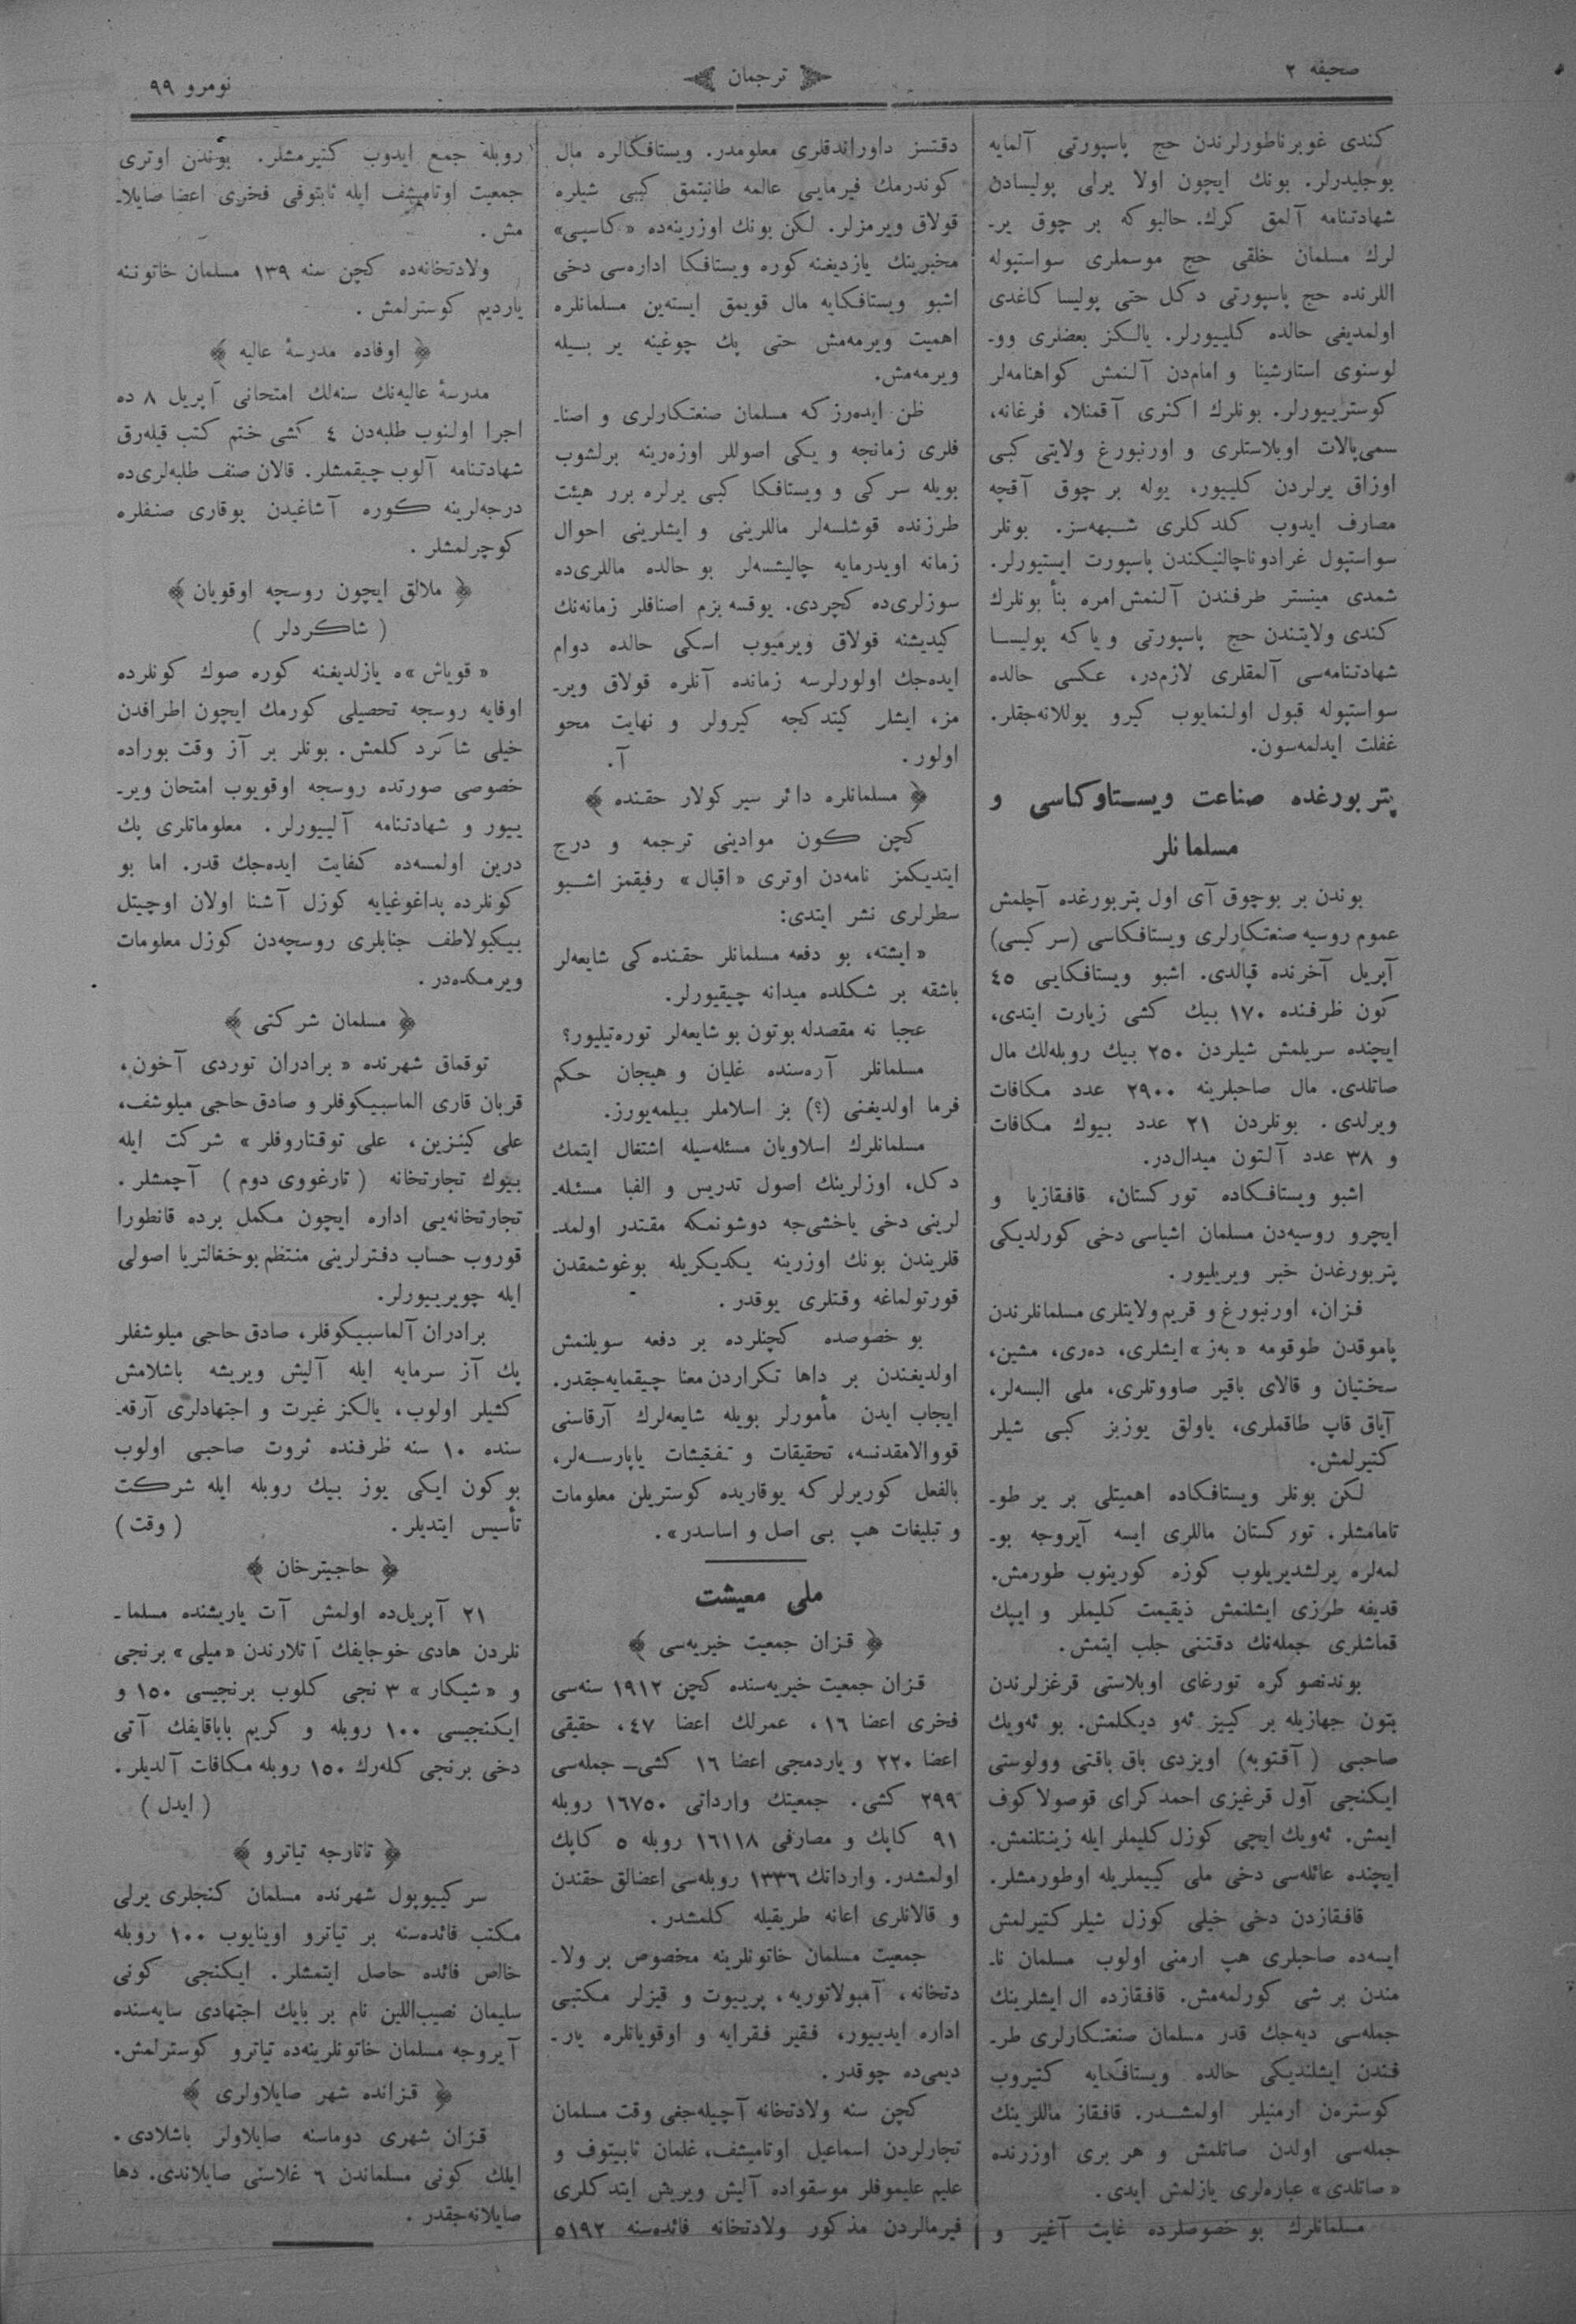 صحيفه ٢
ترجمان
نومرو ٩٩
كندى غوبرناطورلرندن حج پاسپورتى آلمايه
بوجليدرلر. بونك ايچون اولا يرلى پوليسادن
شهادتنامه آلمق كرك. حالبوكه بر چوق ير-
لرك مسلمان خلقى حج موسملرى سواستپوله
اللرنده حج پاسپورتى دكل حتى پوليسا كاغدى
اولمديغى حالده كليورلر. يالكز بعضلرى وو-
لوسنوى استارشينا و امام‌دن آلنمش كواهنامه‌لر
كوستريورلر. بونلرك اكثرى آقمنلا، فرغانه،
سمى‌پالات اوبلاستلرى و اورنبورغ ولايتى كبى
اوزاق يرلردن كليور، يوله بر چوق آقچه
مصارف ايدوب كلدكلرى شبهه‌سز. بونلر
سواستپول غرادوناچالنيكندن پاسپورت ايستيورلر.
شمدى مينستر طرفندن آلنمش امره بنأ بونلرك
كندى ولايتندن حج پاسپورتى وياكه پوليسا
شهادتنامه‌سى آلمقلرى لازم‌در، عكسى حالده
سواستپوله قبول اولنمايوب كيرو يوللانه‌جقلر.
غفلت ايدلمه‌سون.
پتربورغده صناعت ويستاوكاسى و
مسلمانلر
بوندن بر بوچوق آى اول پتربورغده آچلمش
عموم روسيه صنعتكارلرى ويستافكاسى (سركيسى)
آپريل آخرنده قپالدى. اشبو ويستافكايى ٤٥
كون ظرفنده ١٧٠ بيك كشى زيارت ايتدى،
ايچنده سريلمش شيلردن ٢٥٠ بيك روبله‌لك مال
صاتلدى. مال صاحبلرينه ٢٩٠٠ عدد مكافات
ويرلدى. بونلردن ٢١ عدد بيوك مكافات
و ٣٨ عدد آلتون ميدال‌در.
اشبو ويستافكاده توركستان، قافقازيا و
ايچرو روسيه‌دن مسلمان اشياسى دخى كورلديكى
پتربورغدن خبر ويريليور.
قزان، اورنبورغ و قريم ولايتلرى مسلمانلرندن
پاموقدن طوقومه «به‌ز» ايشلرى، ده‌رى، مشين،
سختيان و قالاى باقير صاووتلرى، ملى البسه‌لر،
آياق قاپ طاقملرى، ياولق يوزبز كبى شيلر
كتيرلمش.
لكن بونلر ويستافكاده اهميتلى بر ير طو-
تامامشلر. توركستان ماللرى ايسه آيروجه بو-
لمه‌لره يرلشديريلوب كوزه كورينوب طورمش.
قديفه طرزى ايشلنمش ذيقيمت كليملر و ايپك
قماشلرى جمله‌نك دقتنى جلب ايتمش.
بوندنصوكره تورغاى اوبلاستى قرغزلرندن
بتون جهازيله بر كييز ئه‌و ديكلمش. بو ئه‌ويك
صاحبى (آقتوبه) اويزدى باق باقتى وولوستى
ايكنجى آول قرغيزى احمدكراى قوصولاكوف
ايمش. ئه‌ويك ايچى كوزل كليملر ايله زينتلنمش.
ايچنده عائله‌سى دخى ملى كييملريله اوطورمشلر.
قافقازدن دخى خيلى كوزل شيلر كتيرلمش
ايسه‌ده صاحبلرى هپ ارمنى اولوب مسلمان نا-
مندن بر شى كورلمه‌مش. قافقازده ال ايشلرينك
جمله‌سى ديه‌جك قدر مسلمان صنعتكارلرى طر-
فندن ايشلنديكى حالده ويستافكايه كتيروب
كوسترەن ارمنيلر اولمشدر. قافقاز ماللرينك
جمله‌سى اولدن صاتلمش و هر برى اوزرنده
«صاتلدى» عباره‌لرى يازلمش ايدى.
مسلمانلرك بو خصوصلرده غايت آغير و
دقتسز داوراندقلرى معلومدر. ويستافكالره مال
كوندرمك فيرمايى عالمه طانيتمق كبى شيلره
قولاق ويرمزلر. لكن بونك اوزرينه‌ده «كاسپى»
مخبرينك يازديغنه كوره ويستافكا اداره‌سى دخى
اشبو ويستافكايه مال قويمق ايسته‌ين مسلمانلره
اهميت ويرمه‌مش حتى پك چوغينه ير بيله
ويرمه‌مش.
ظن ايده‌رز كه مسلمان صنعتكارلرى و اصنا-
فلرى زمانجه و يكى اصوللر اوزه‌رينه برلشوب
بويله سركى و ويستافكا كبى يرلره برر هيئت
طرزنده قوشلسه‌لر ماللرينى و ايشلرينى احوال
زمانه اويدرمايه چاليشسه‌لر بو حالده ماللرى‌ده
سوزلرى‌ده كچردى. يوقسه بزم اصنافلر زمانه‌نك
كيديشنه قولاق ويرميوب اسكى حالده دوام
ايده‌جك اولورلرسه زمانده آنلره قولاق وير-
مز، ايشلر كيتدكجه كيرولر و نهايت محو
اولور. آ.
مسلمانلره دائر سيركولار حقنده
كچن كون موادينى ترجمه و درج
ايتديكمز نامه‌دن اوترى «اقبال» رفيقمز اشبو
سطرلرى نشر ايتدى:
«ايشته، بو دفعه مسلمانلر حقنده‌كى شايعه‌لر
باشقه بر شكلده ميدانه چيقيورلر.
عجبا نه مقصدله بوتون بو شايعه‌لر توره‌تيليور؟
مسلمانلر آره‌سنده غليان و هيجان حكم
فرما اولديغنى (؟) بز اسلاملر بيلمه‌يورز.
مسلمانلرك اسلاويان مسئله‌سيله اشتغال ايتمك
دكل، اوزلرينك اصول تدريس و الفبا مسئله-
لرينى دخى ياخشى‌جه دوشونمكه مقتدر اولمد-
قلريندن بونك اوزرينه يكديكريله بوغوشمقدن
قورتولماغه وقتلرى يوقدر.
بو خصوصده كچنلرده بر دفعه سويلنمش
اولديغندن بر داها تكراردن معنا چيقمايه‌جقدر.
ايجاب ايدن مأمورلر بويله شايعه‌لرك آرقاسنى
قووالامقدنسه، تحقيقات و تفتيشات ياپارسه‌لر،
بالفعل كوريرلر كه يوقاريده كوستريلن معلومات
و تبليغات هپ بى اصل و اساسدر».
ملى معيشت
قزان جمعيت خيريه‌سى
قزان جمعيت خيريه‌سنده كچن ١٩١٢ سنه‌سى
فخرى اعضا ١٦، عمرلك اعضا ٤٧، حقيقى
اعضا ٢٢٠ و ياردمجى اعضا ١٦ كشى- جمله‌سى
٢٩٩ كشى. جمعيتك وارداتى ١٦٧٥٠ روبله
٩١ كاپك و مصارفى ١٦١١٨ روبله ٥ كاپك
اولمشدر. وارداتك ١٣٣٦ روبله‌سى اعضالق حقندن
و قالانلرى اعانه طريقيله كلمشدر.
جمعيت مسلمان خاتونلرينه مخصوص بر ولا-
دتخانه، آمبولاتوريه، پرييوت و قيزلر مكتبى
اداره ايدييور، فقير فقرايه و اوقويانلره يار-
ديمى‌ده چوقدر.
كچن سنه ولادتخانه آچيله‌جغى وقت مسلمان
تجارلردن اسماعيل اوتاميشف، غلمان ثابيتوف و
عليم عليموفلر موسقواده آليش ويريش ايتدكلرى
فيرمالردن مذكور ولادتخانه فائده‌سنه ٥١٩٢
روبله جمع ايدوب كتيرمشلر. بوندن اوترى
جمعيت اوتاميشف ايله ثابتوفى فخرى اعضا صايلا-
مش.
ولادتخانه‌ده كچن سنه ١٣٩ مسلمان خاتوننه
يارديم كوسترلمش.
اوفاده مدرسۀ عاليه
مدرسۀ عاليه‌نك سنه‌لك امتحانى آپريل ٨ ده
اجرا اولنوب طلبه‌دن ٤ كشى ختم كتب قيله‌رق
شهادتنامه آلوب چيقمشلر. قالان صنف طلبه‌لرى‌ده
درجه‌لرينه كوره آشاغيدن يوقارى صنفلره
كوچرلمشلر.
ملالق ايچون روسچه اوقويان
(شاكردلر)
«قوياش»ه يازلديغنه كوره صوك كونلرده
اوفايه روسجه تحصيلى كورمك ايچون اطرافدن
خيلى شاكرد كلمش. بونلر بر آز وقت بوراده
خصوصى صورتده روسجه اوقويوب امتحان وير-
ييور و شهادتنامه آلييورلر. معلوماتلرى پك
درين اولمسه‌ده كفايت ايده‌جك قدر. اما بو
كونلرده پداغوغيايه كوزل آشنا اولان اوچيتل
بيكبولاطف جنابلرى روسچه‌دن كوزل معلومات
ويرمكده‌در.
مسلمان شركتى
توقماق شهرنده «برادران توردى آخون،
قربان قارى الماسبيكوفلر و صادق حاجى ميلوشف،
على كينزين، على توقتاروفلر» شركت ايله
بيوك تجارتخانه (تارغووى دوم) آچمشلر.
تجارتخانه‌يى اداره ايچون مكمل برده قانطورا
قوروب حساب دفترلرينى منتظم بوخغالتريا اصولى
ايله چويرييورلر.
برادران آلماسبيكوفلر، صادق حاجى ميلوشفلر
پك آز سرمايه ايله آليش ويريشه باشلامش
كشيلر اولوب، يالكز غيرت و اجتهادلرى آرقه-
سنده ١٠ سنه ظرفنده ثروت صاحبى اولوب
بوكون ايكى يوز بيك روبله ايله شركت
تأسيس ايتديلر. (وقت)
حاجيترخان
٢١ آپريل‌ده اولمش آت ياريشنده مسلما-
نلردن هادى خوجايفك آتلارندن «ميلى» برنجى
و «شيكار» ٣ نجى كلوب برنجيسى ١٥٠ و
ايكنجيسى ١٠٠ روبله و كريم باباقايفك آتى
دخى برنجى كله‌رك ١٥٠ روبله مكافات آلديلر.
(ايدل)
تاتارجه تياترو
سركييوپول شهرنده مسلمان كنجلرى يرلى
مكتب فائده‌سنه بر تياترو اوينايوب ١٠٠ روبله
خالص فائده حاصل ايتمشلر. ايكنجى كونى
سليمان نصيب‌اللين نام بر بايك اجتهادى سايه‌سنده
آيروجه مسلمان خاتونلرينه‌ده تياترو كوسترلمش.
قزانده شهر صايلاولرى
قزان شهرى دوماسنه صايلاولر باشلادى.
ايلك كونى مسلماندن ٦ غلاسنى صايلاندى. دها
صايلانه‌جقدر.